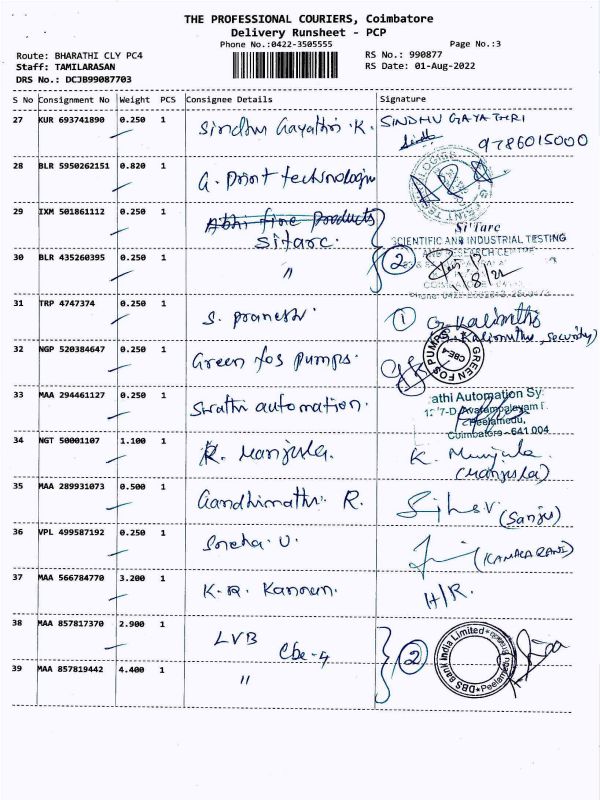 THE PROFESSIONAL COURIERS, Coimbatore
Delivery Runsheet - PCP
Phone No.:0422-3505555 Page No.:3
Route: BHARATHI CLY PC4 RS No.: 990877
Staff: TAMILARASAN RS Date: 01-Aug-2022
DRS No.: DCJB99087703
S No Consignment No Weight PCS Consignee Details Signature
27 KUR 693741890 0.250 1 Sindhu Gayathri .K. SINDHU GAYATHRI
9786015000
28 BLR 5950262151 0.820 1 G. Print technologies
29 IXM 501861112 0.250 1 Abhi fine Products
Sitarc. Si'Tarc
SCIENTIFIC AND INDUSTRIAL TESTING
AND RESEARCH CENTRE
30 BLR 435260395 0.250 1 " 2
1/8/22
31 TRP 4747374 0.250 1 S. pranesh. 1 G. Kalimuthu
(G. Kalimuthu, security)
32 NGP 520384647 0.250 1 Green fos pumps. GREEN FOS PUMPS CBE-4
33 MAA 294461127 0.250 1 Swathi automation. athi Automation Sy
Avarampalayam
Peelamedu,
Coimbatore - 641 004
34 NGT 50001107 1.100 1 R. Manjula. K. Munjula
(Manjula)
35 MAA 289931073 0.500 1 Gandhimathi R. (Sanju)
36 VPL 499587192 0.250 1 Sneha. U. (KAMALA RANI)
37 MAA 566784770 3.200 1 K.R. Kannan. H/R.
38 MAA 857817370 2.900 1 LVB
Cbe-4 2 DBS Bank India Limited Peelamedu
39 MAA 857819442 4.400 1 "